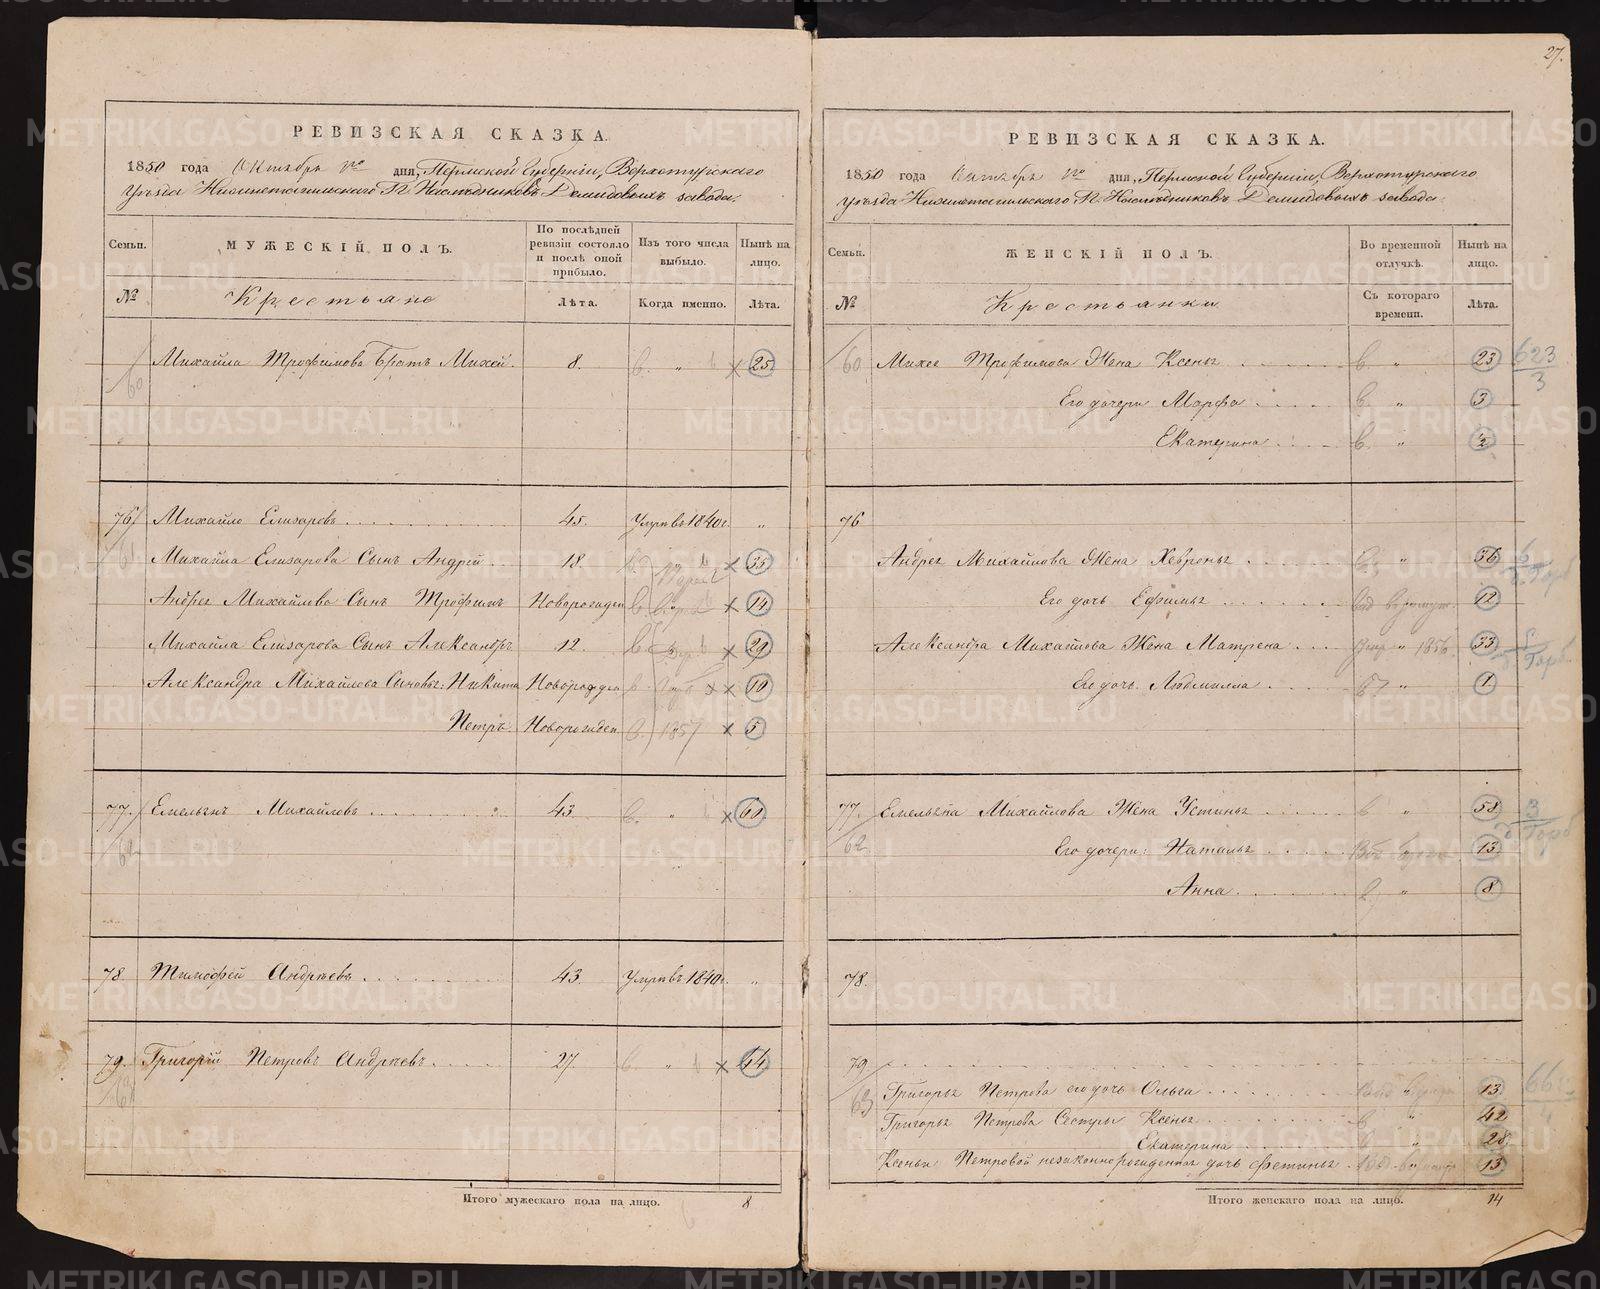 27.
РЕВИЗСКАЯ СКАЗКА.
1850 года Октября дня, Пермской Губерніи, Верхотурскаго
Уѣзда Нижнетагильскаго Г. Наслѣдниковъ Демидовыхъ завода.
Семьи. МУЖЕСКІЙ ПОЛЪ. По послѣдней ревизіи состояло и послѣ оной прибыло. Изъ того числа выбыло. Нынѣ на лицо.
№ Крестьяне Лѣта. Когда именно. Лѣта.
60 Михайла Трофимова Братъ Михей. 8. в. " × 25
76 Михайло Елизаровъ 45. Умръ въ 1840 г. "
Михайла Елизарова Сынъ Андрей 18. × 35
Андрея Михайлова Сынъ Трофимъ Новорожден × 14
Михайла Елизарова Сынъ Александръ 12. × 29
Александра Михайлова Сыновья: Никита Новорожден × 10
Петръ. Новорожден 1857 × 5
77. Емельянъ Михайловъ 43. в. " × 60
62
78 Тимофей Андрѣевъ 43. Умръ въ 1840 г. "
79. Григорій Петровъ Андрѣевъ 27. " × 44
Итого мужескаго пола на лицо. 8
РЕВИЗСКАЯ СКАЗКА.
1850 года Октября дня, Пермской Губерніи, Верхотурскаго
уѣзда Нижнетагильскаго Г. Наслѣдниковъ Демидовыхъ завода.
Семьи. ЖЕНСКІЙ ПОЛЪ. Во временной отлучкѣ. Нынѣ на лицо.
№ Крестьянки Съ котораго времени. Лѣта.
60 Михея Трофимова Жена Ксенья в " 23 623/3
Его дочери Марфа в " 3
Екатерина в " 2
76.
Андрея Михайлова Жена Хевронья " 36
Его дочь Ефимья 12
Александра Михайлова Жена Матрена 1856 33
Его дочь Людмилла " 1
77. Емельяна Михайлова Жена Устинья " 58
62 Его дочери: Наталья 13
Анна " 8
78.
79
63 Григорья Петрова его дочь Ольга 13
Григорья Петрова Сестры Ксенья " 42
Екатерина " 28
Ксеньи Петровой незаконнорожденная дочь Фетинья 13
Итого женскаго пола на лицо. 14
METRIKI.GASO-URAL.RU